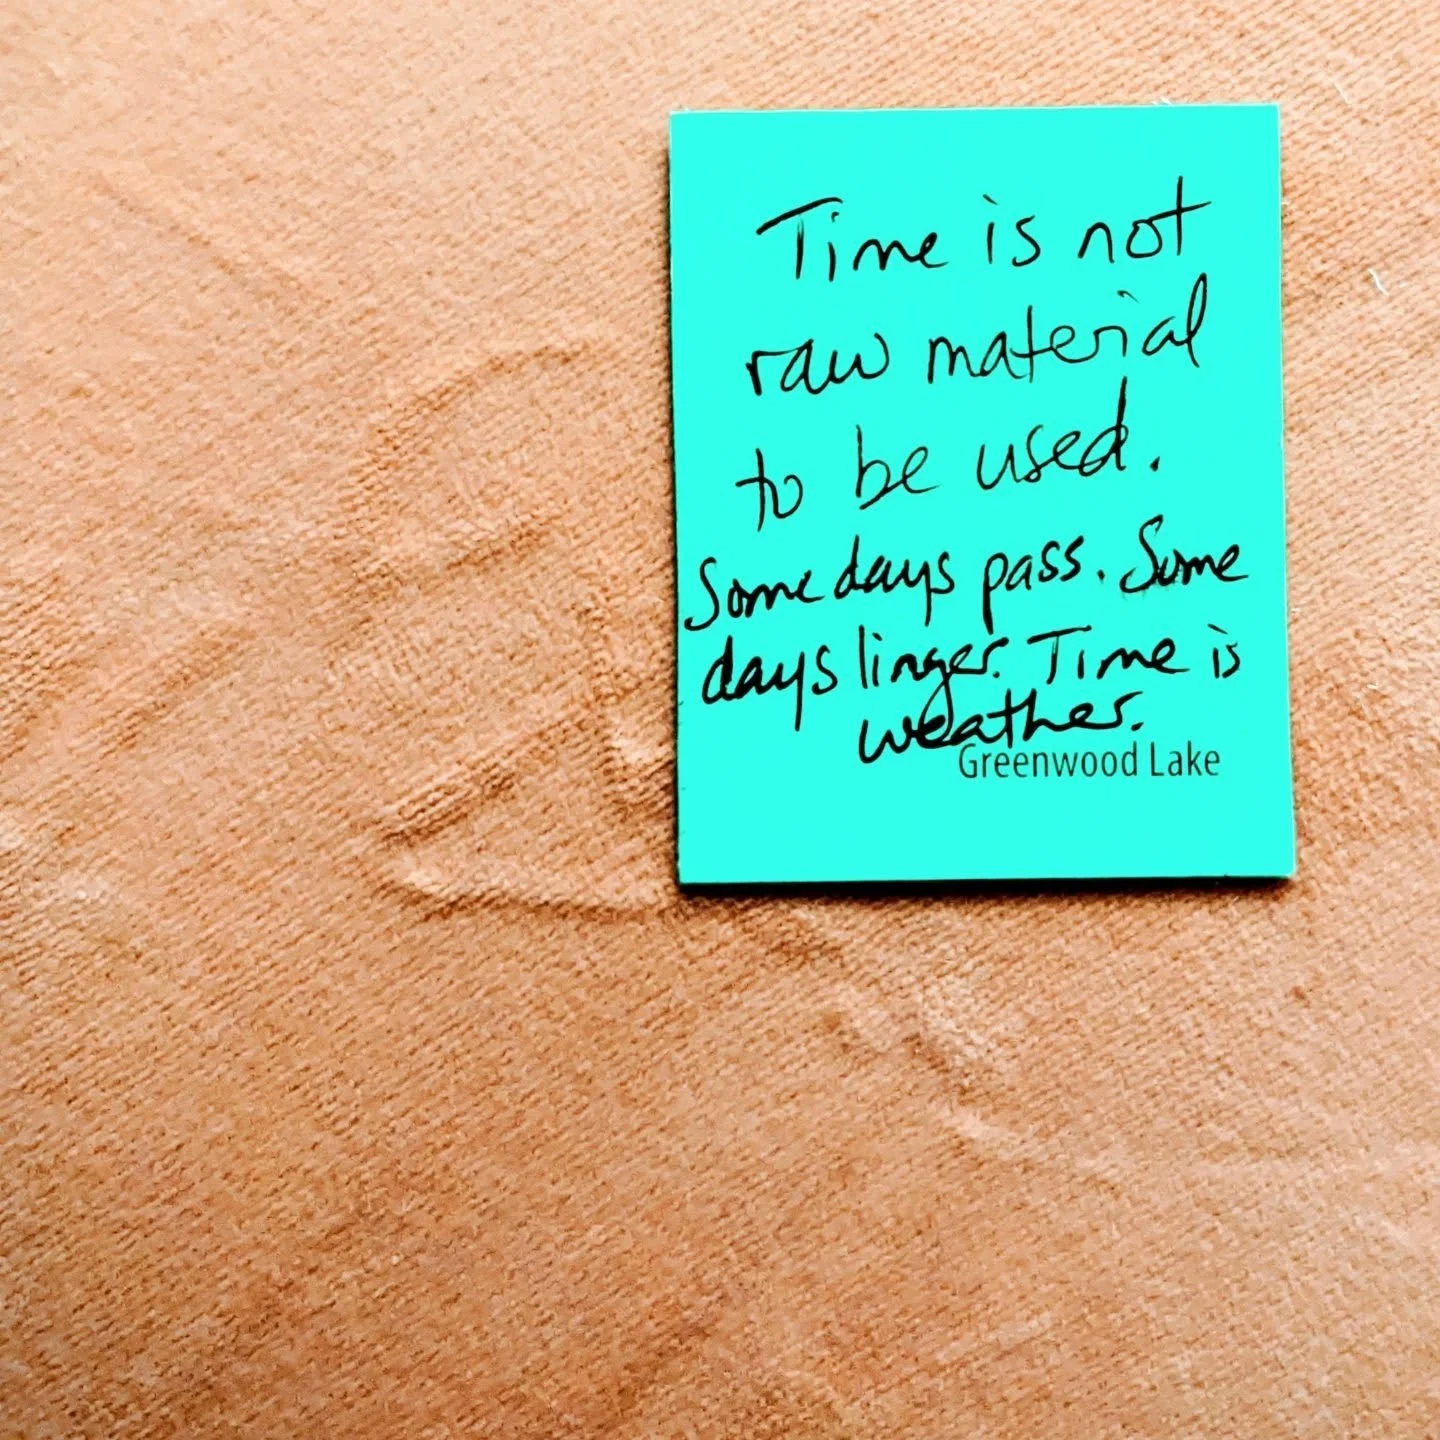 Time is not
raw material
to be used.
Some days pass. Some
days linger. Time is
weather.
Greenwood Lake